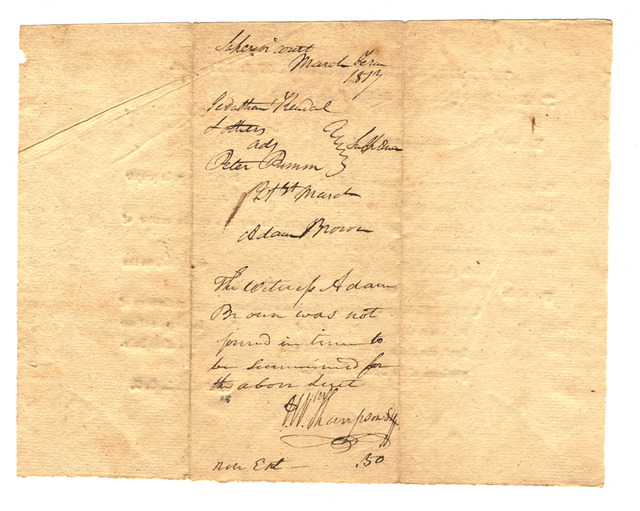 Superior Court
March Term
1817
Jonathan Kendal
& others
ads
Peter Bimm
21st March
Adam Brown
The Witness Adam
Brown was not
found in time to
be Summoned for
the above suit
Thompson Shff
non Est — .50